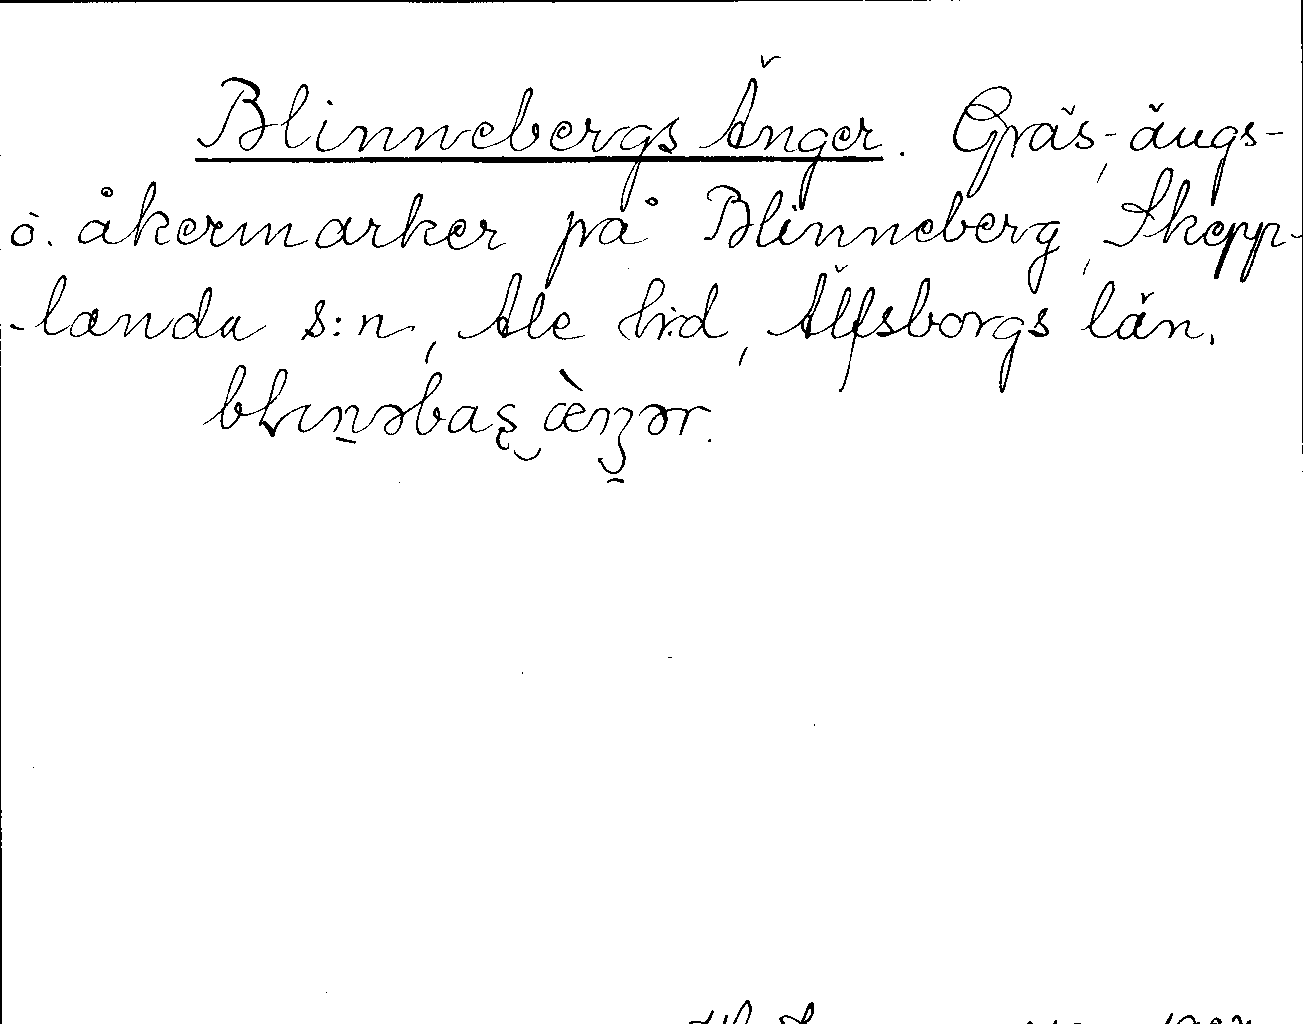 Blinnebergs Änger. Gräs-, ängs-
o. åkermarker på Blinneberg, Skepp-
-landa s:n, Ale h:d, Älfsborgs län.